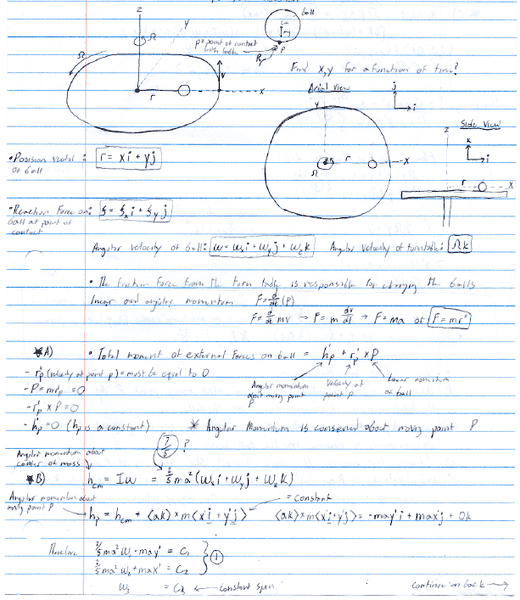 z
y
Ω
Ω
r
x
v
ball
P
R
p = point of contact
with table
Find x,y for a function of time?
Aerial View
j
i
y
Ω
r
x
Side View
z
k
i
r
x
• Position vector : r = xi + yj
of ball
• Reaction Force on:
ball at point of
contact
Angular velocity of ball: w = wₓi + w_yj + w_zk Angular Velocity of turntable: Ωk
• The friction force from the turn table is responsible for changing the balls
linear and angular momentum F = d/dt (P)
F = d/dt mv → F = m dv/dt → F = ma or F = mr"
A) • Total moment of external forces on ball = h'p + r'p × P
- r'p (velocity at point p) = must be equal to 0
- P = mr'p = 0
- r'p × P = 0
Angular momentum
about moving point
P
Velocity of
point P
Linear momentum
of ball
- h'p = 0 (hp is a constant) * Angular Momentum is conserved about moving point P
Angular momentum about
center of mass
?
B) h_cm = Iw = 2/5 ma²(wₓi + w_yj + w_zk)
Angular momentum about
moving point P
= constant
hp = h_cm + (ak) × m(x'i + y'j) (ak) × m(x'i + y'j) = -may'i + max'j + 0k
Therefore 2/5 ma² wₓ - may' = C₁
2/5 ma² w_y + max' = C₂
①
w_z = C₃ ← constant spin
continue on back →